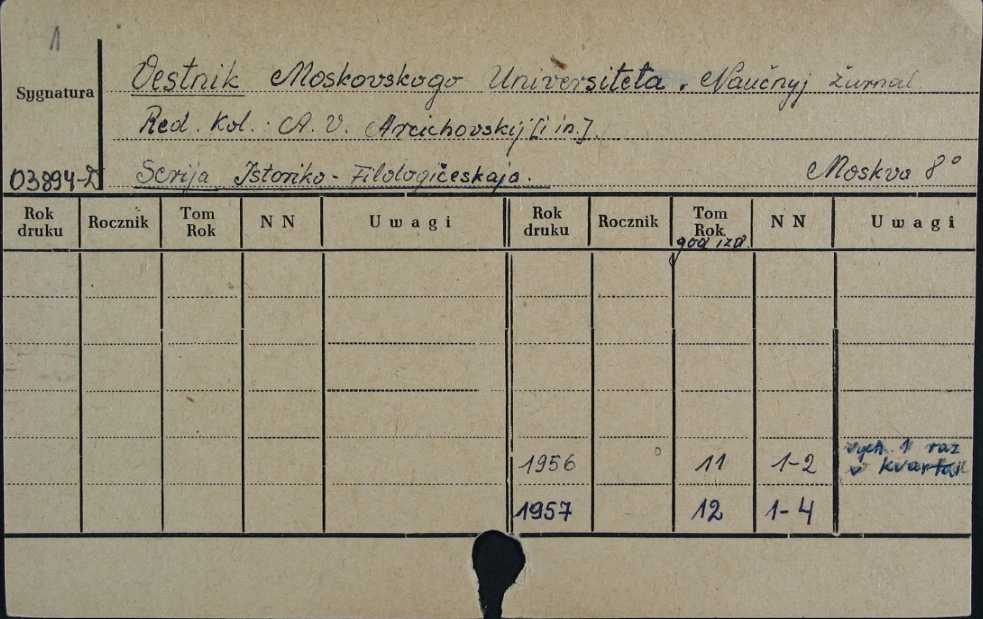 1
Vestnik Moskovskogo Universiteta. Naučnyj žurnal
Sygnatura
Red. kol. A. V. Arcichovskij [i in.].
03894-D
Serija Istoriko-Filologičeskaja. Moskva 8°
Rok druku Rocznik Tom Rok N N Uwagi Rok druku Rocznik Tom Rok N N Uwagi
god izd
vych. 1 raz
1956 11 1-2 v kvartal
1957 12 1-4